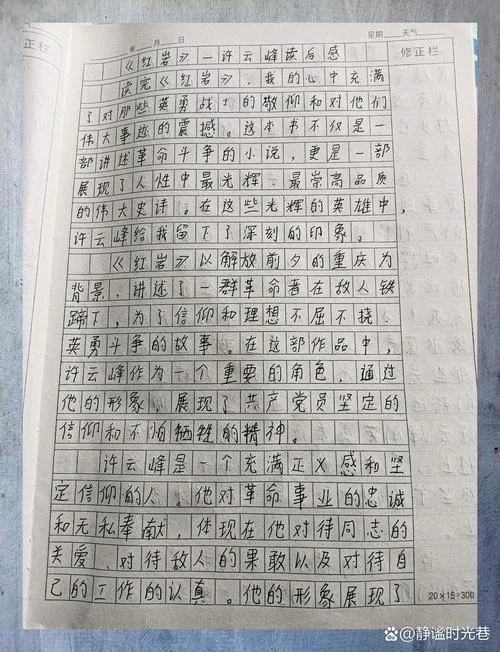 年 月 日 星期 天气
修正栏
《红岩》—许云峰读后感
读完《红岩》，我的心中充满
了对那些英勇战士的敬仰和对他们
伟大事迹的震撼。这本书不仅是一
部讲述革命斗争的小说，更是一部
展现了人性中最光辉、最崇高品质
的伟大史诗。在这些光辉的英雄中，
许云峰给我留下了深刻的印象。
《红岩》以解放前夕的重庆为
背景，讲述了一群革命者在敌人铁
蹄下，为了信仰和理想不屈不挠、
英勇斗争的故事。在这部作品中，
许云峰作为一个重要的角色，通过
他的形象，展现了共产党员坚定的
信仰和不怕牺牲的精神。
许云峰是一个充满正义感和坚
定信仰的人。他对革命事业的忠诚
和无私奉献，体现在他对待同志的
关爱、对待敌人的果敢以及对待自
己的工作的认真。他的形象展现了
20×15=300
@静谧时光巷